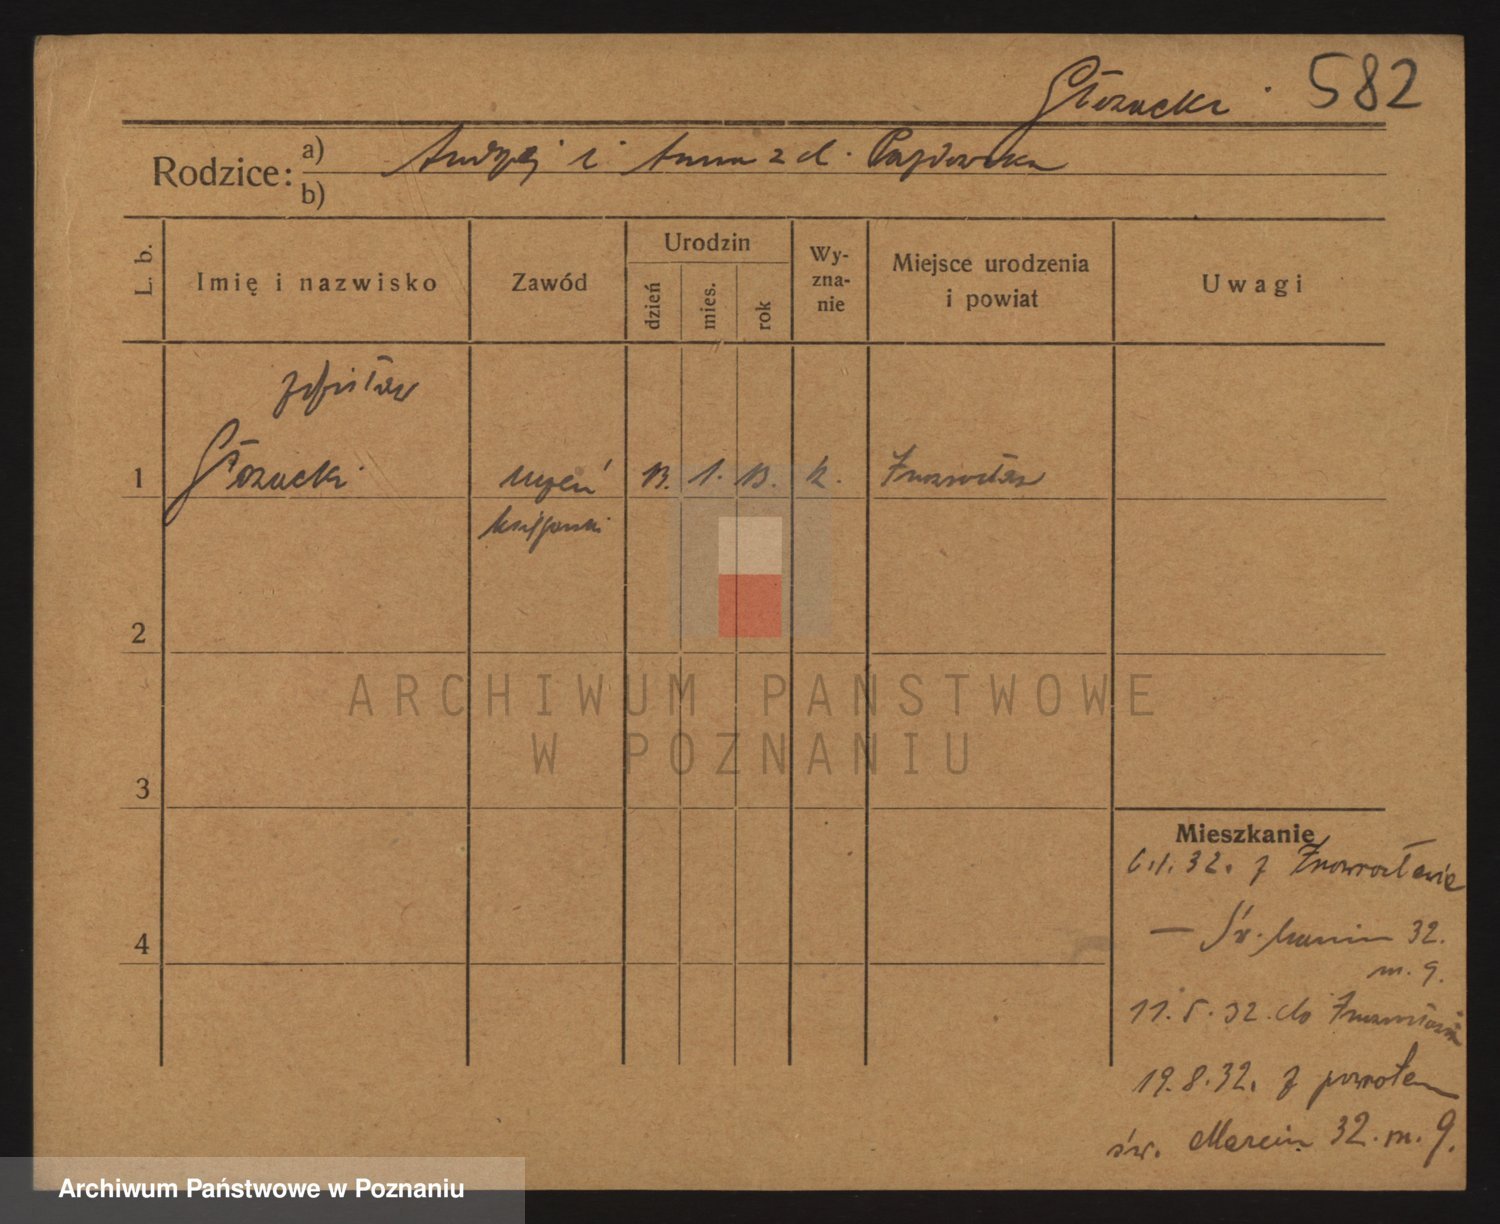 Głozacki 582
Rodzice:
a) Andrzej i Anna z d.
b)
L. b.
Imię i nazwisko
Zawód
Urodzin
dzień
mies.
rok
Wy-
zna-
nie
Miejsce urodzenia
i powiat
Uwagi
Zdzisław
1 Głozacki uczeń 13. 1. 13. k. Inowrocław
księgarski
2
3
4
Mieszkanie
6.1.32. z Inowrocławia
— Św. Marcin 32.
m. 9.
11.5.32. do Inowrocławia
19.8.32. z powrotem
św. Marcin 32. m. 9.
ARCHIWUM PAŃSTWOWE
W POZNANIU
Archiwum Państwowe w Poznaniu